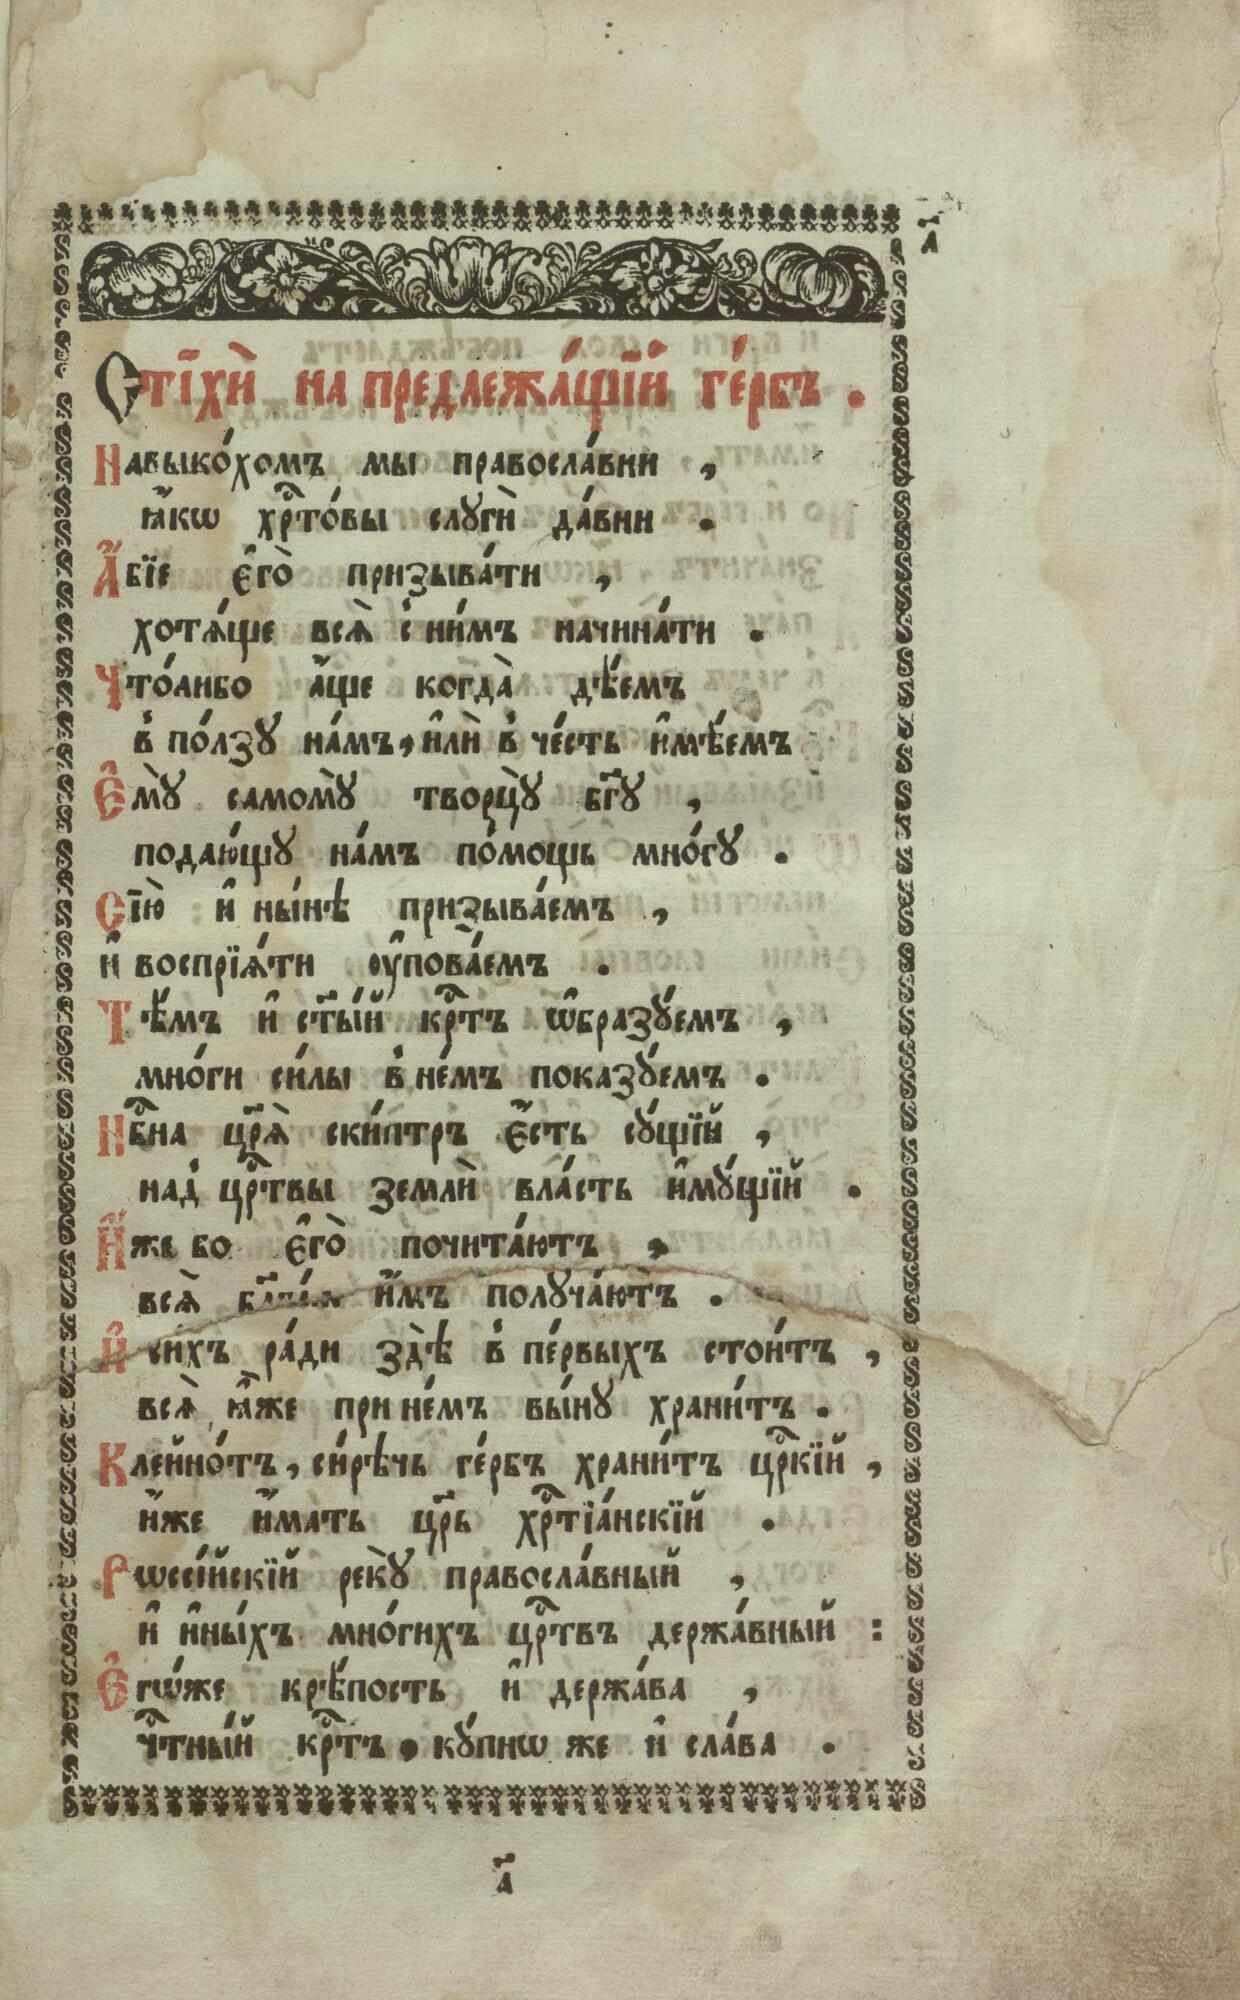 а҃
Стїхѝ на предлежа́щїй ге́рбъ .
Навыко́хомъ мы правосла́вни ,
ꙗ҆́кѡ хрⷭ҇то́вы слꙋгѝ да́вни .
А҆́бїе є҆го̀ призыва́ти ,
хотѧ́ще всѧ̀ с̾ ни́мъ начина́ти .
Что́либо а҆́ще когда̀ дѣ́емъ
в̾ по́лзꙋ на́мъ, и҆лѝ в̾ че́сть и҆мѣ́емъ
Є҆мꙋ̀ самомꙋ̀ творцꙋ̀ бг҃ꙋ ,
подаю́щꙋ на́мъ по́мощь мно́гꙋ .
Сїю̀ и҆ ны́нѣ призыва́емъ ,
и҆ воспрїѧ́ти ᲂу҆пова́емъ .
Тѣ́мъ и҆ ст҃ы́й крⷭ҇тъ ѡ҆бразꙋ́емъ ,
мно́ги си́лы в̾ не́мъ показꙋ́емъ .
Нбⷭ҇на цр҃ѧ̀ ски́птръ є҆́сть сꙋ́щїй ,
над̾ црⷭ҇твы землѝ вла́сть и҆мꙋ́щїй .
И҆̀же бо є҆го̀ почита́ютъ ,
всѧ̀ и҆́мъ полꙋча́ютъ .
И҆ си́хъ ра́ди здѣ̀ в̾ пе́рвыхъ стои́тъ ,
всѧ̀ ꙗ҆̀же при не́мъ вы́нꙋ храни́тъ .
Клейно́тъ, си́рѣчь ге́рбъ храни́тъ црⷭ҇кїй ,
и҆́же и҆́мать цр҃ь хрⷭ҇тїа́нскїй .
Рѡссі́йскїй рекꙋ̀ правосла́вный ,
и҆ и҆ны́хъ мно́гихъ црⷭ҇твъ держа́вный :
Є҆гѡ́же крѣ́пость и҆ держа́ва ,
чⷭ҇тны́й крⷭ҇тъ, кꙋ́пнѡ же и҆ сла́ва .
а҃